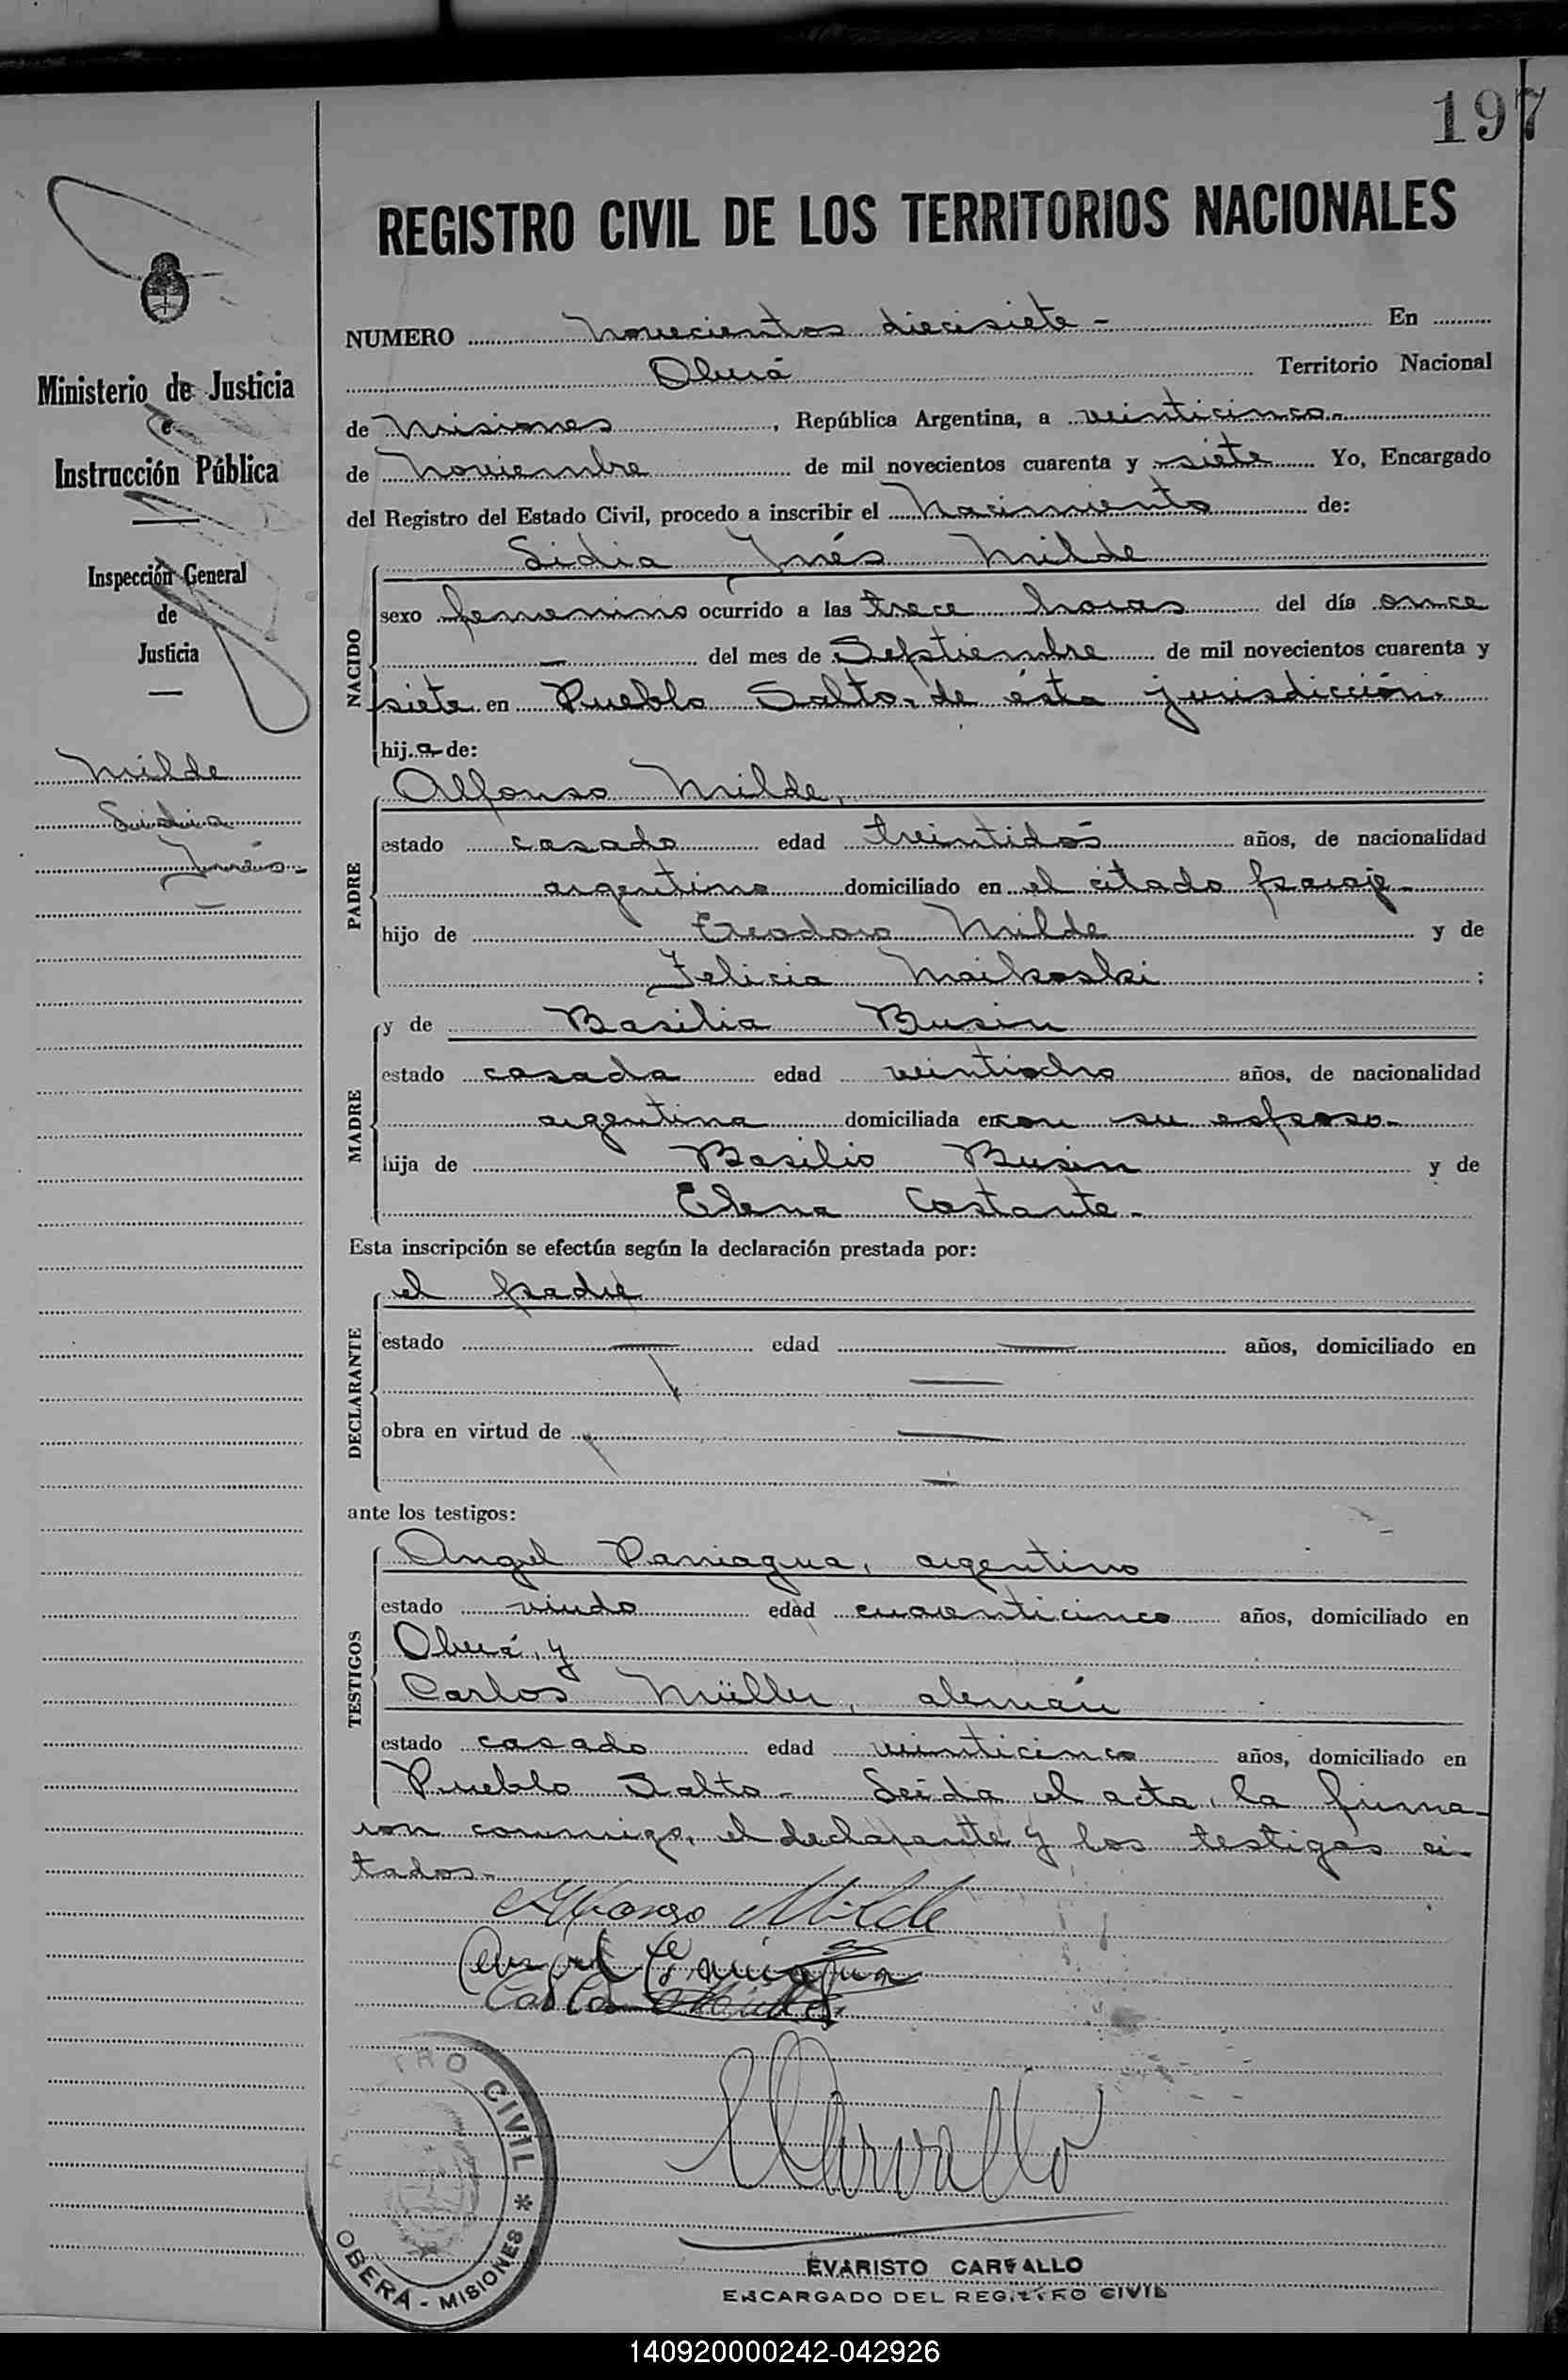 197
REGISTRO CIVIL DE LOS TERRITORIOS NACIONALES
Ministerio de Justicia
e
Instrucción Pública
Inspección General
de
Justicia
Milde
Lidia
Inés
NUMERO novecientos diecisiete - En
Oberá Territorio Nacional
de Misiones, República Argentina, a veinticinco-
de Noviembre de mil novecientos cuarenta y siete Yo, Encargado
del Registro del Estado Civil, procedo a inscribir el Nacimiento de:
NACIDO
Lidia Inés Milde
sexo femenino ocurrido a las trece horas del día once
- del mes de Septiembre de mil novecientos cuarenta y
siete en Pueblo Salto, de ésta jurisdicción-
hija de:
PADRE
Alfonso Milde,
estado casado edad treintidós años, de nacionalidad
argentino domiciliado en el citado paraje-
hijo de Teodoro Milde y de
Felicia Maikoski ;
MADRE
y de Basilia Busin
estado casada edad veintiocho años, de nacionalidad
argentina domiciliada en con su esposo-
hija de Basilio Busin y de
Elena Costante-
Esta inscripción se efectúa según la declaración prestada por:
DECLARANTE
el padre
estado — edad — años, domiciliado en
—
obra en virtud de —
—
ante los testigos:
TESTIGOS
Angel Paniagua, argentino
estado viudo edad cuarenticinco años, domiciliado en
Oberá, y
Carlos Müller, alemán
estado casado edad veinticinco años, domiciliado en
Pueblo Salto- Leída el acta, la firma-
ron conmigo, el declarante y los testigos ci-
tados-
Alfonso Milde
Angel Paniagua
Carlos Müller
E Carvallo
CIVIL * OBERÁ - MISIONES
EVARISTO CARVALLO
ENCARGADO DEL REGISTRO CIVIL
140920000242-042926